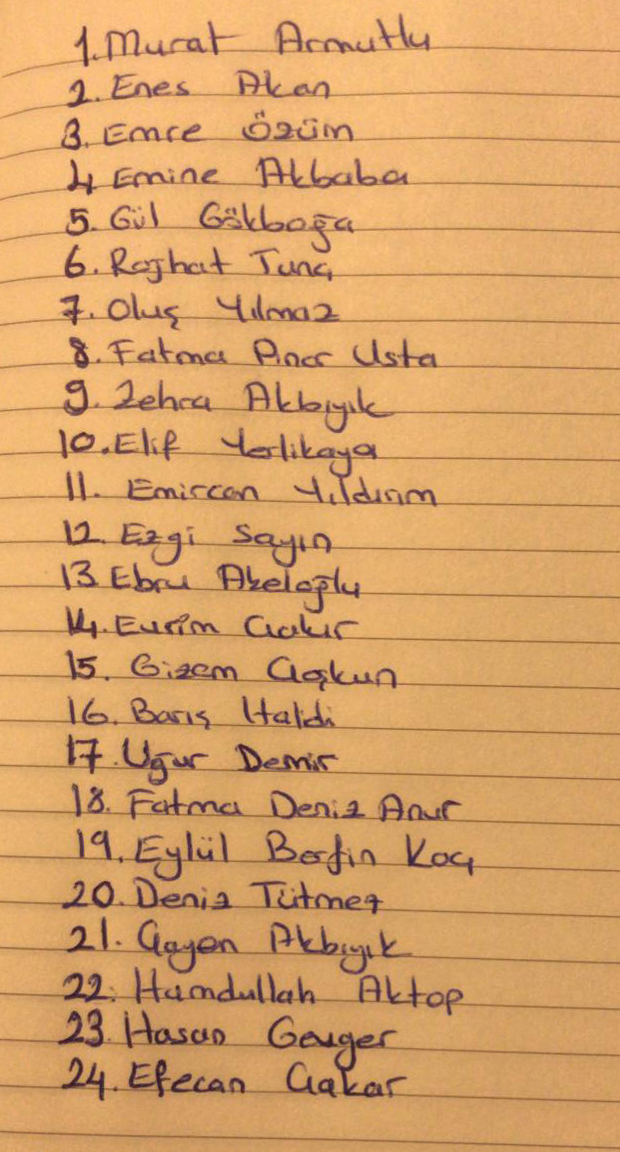 1. Murat Armutlu
2. Enes Akan
3. Emre Özüm
4 Emine Akbaba
5. Gül Gökboğa
6. Rojhat Tunç
7. Oluş Yılmaz
8. Fatma Pınar Usta
9. Zehra Akbıyık
10. Elif Yerlikaya
11. Emircan Yıldırım
12. Ezgi Sayın
13 Ebru
14. Evrim Çakır
15. Gizem Çoşkun
16. Barış Halidi
17. Uğur Demir
18. Fatma Deniz Anur
19. Eylül Berfin Koç
20. Deniz Tütmez
21. Çayan Akbıyık
22. Hamdullah Aktop
23. Hasan
24. Efecan Çakar